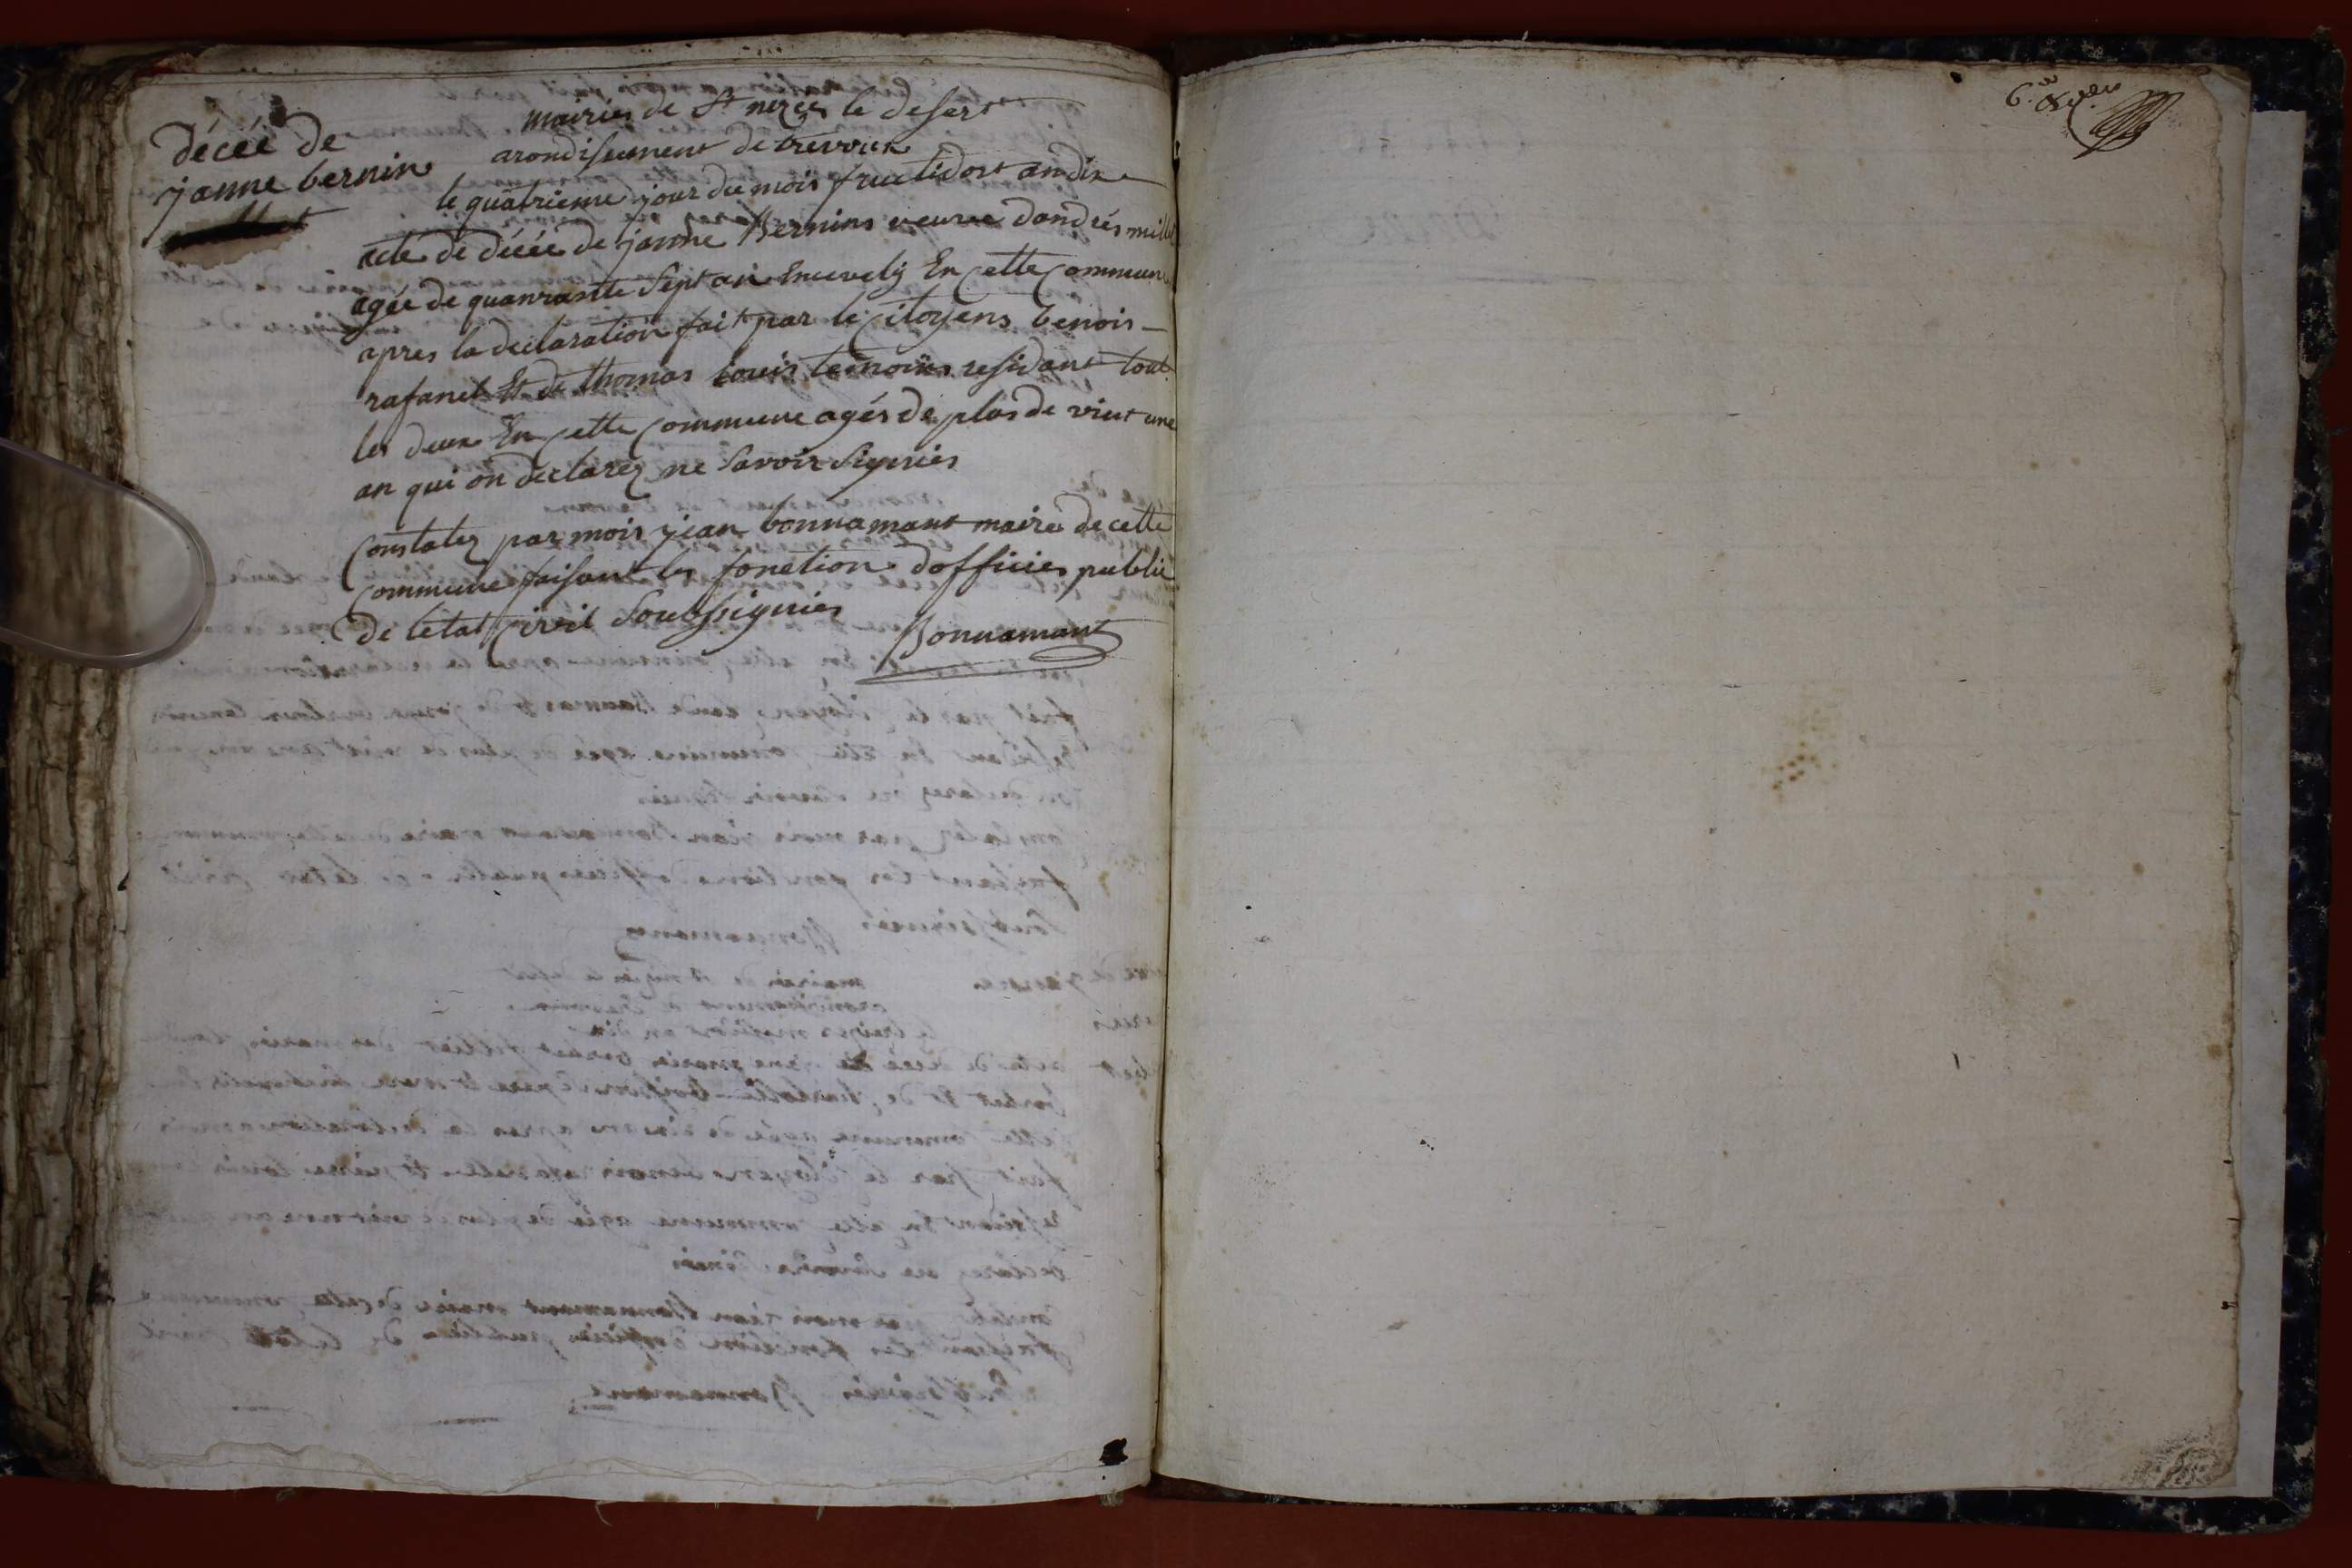 décéé de
janne bernin
mairies de St nezces le desert
arondissement de trevoux
le quatrieme jour du mois fructidort an dix
acte de décée de janne Bernins veuve dandrés mille
agée de quanrante Sept an Encevely En Cette Commune
apres la declaration fait par le Citoyens benois
rafanel Et de thomas Louis temoins residant tout
les deux En Cette Commune agés de plus de vint une
an qui on declarez ne Savoir Signies
Constatez par mois jean bonnamant maires de cette
Commune faisant les fonction dofficies public
de létat Civil Soubssignies
Bonnamant
6.e